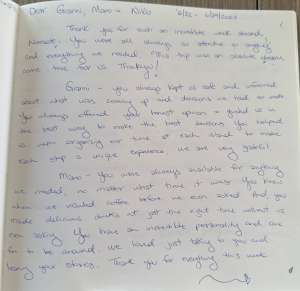 Dear Gianni, Mano + Niko 6/22 - 6/29/2023
Thank you for such an incredible week aboard
Nomads. You were all always so attentive to anything
and everything we needed! This trip was an absolute dream
come true for us. Thank you!
Gianni - you always kept us safe and informed
about what was coming up and decisions we had to make.
You always offered your honest opinion + guided us in
the best way to make the best decisions. You helped
us with organizing our time at each island to make
each stop a unique experience. we are very grateful!
Mano - You were always available for anything
we needed, no matter what time it was. You knew
when we wanted coffee before we even asked. And you
made delicious drinks at just the right time without us
even asking. You have an incredible personality and are
fun to be around. we loved just talking to you and
hearing your stories. Thank you for everything this week